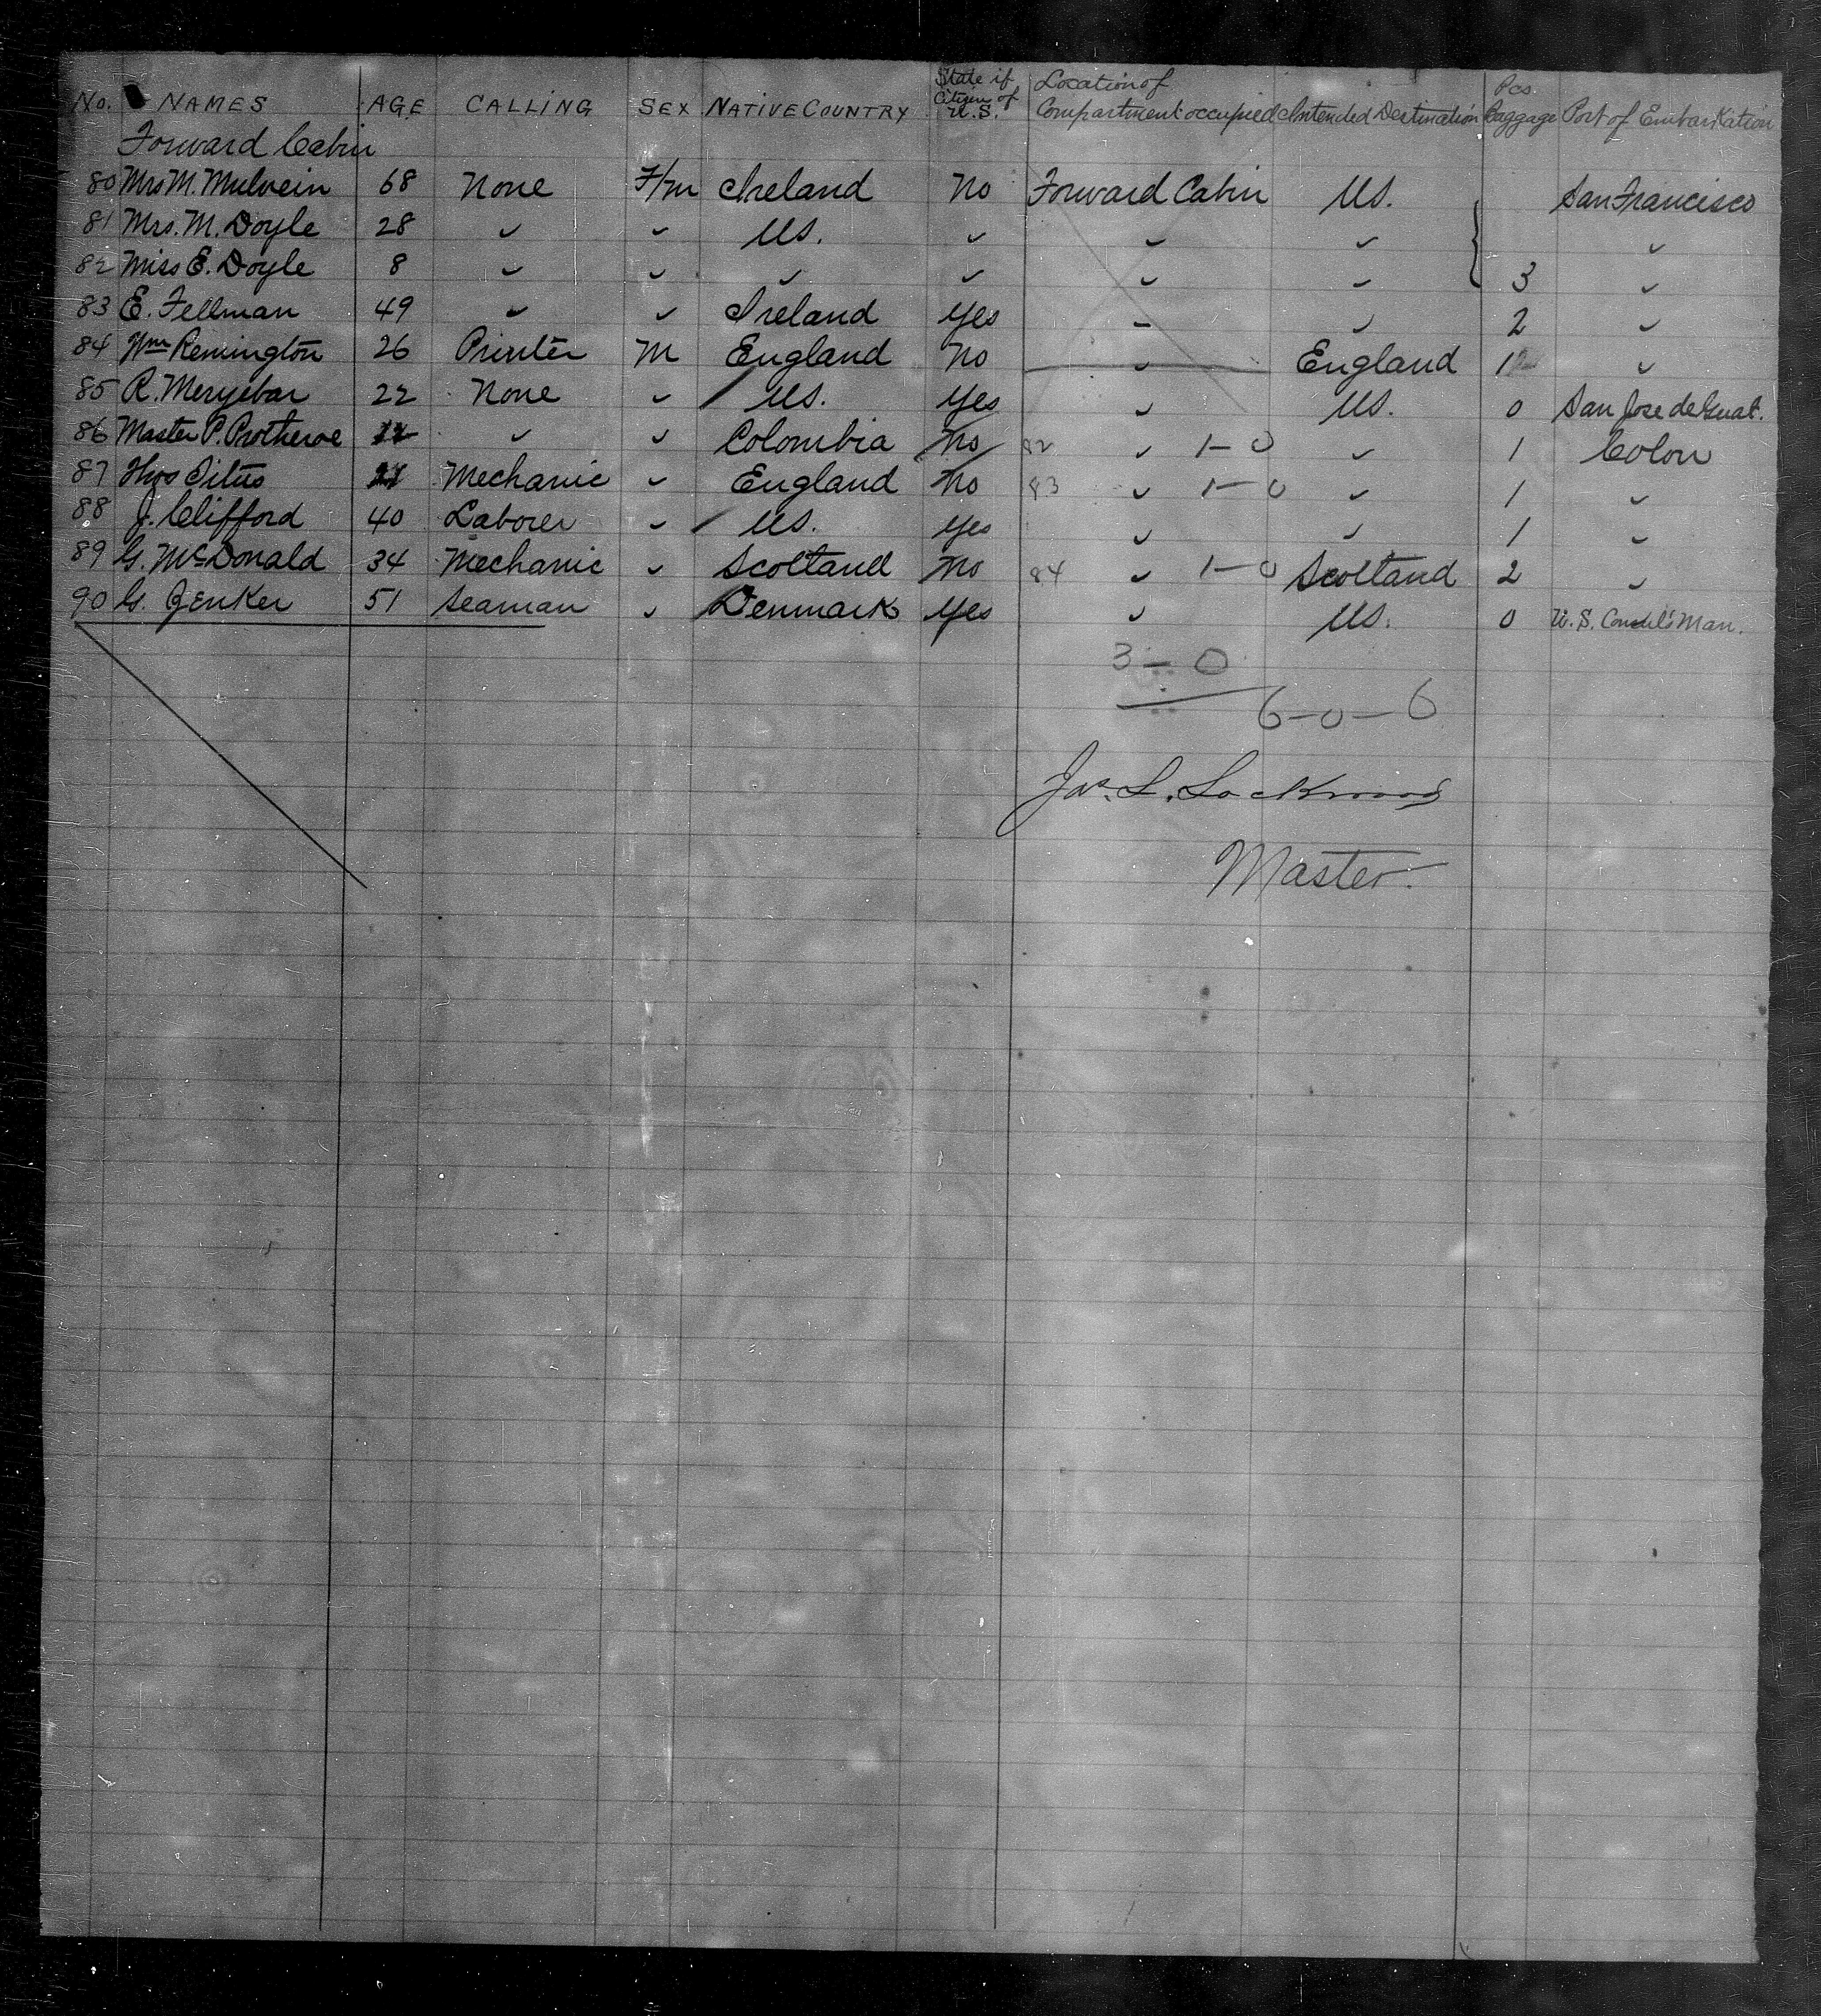 No. NAMES AGE CALLING SEX NATIVE COUNTRY State if Citizen of U.S. Location of Compartment occupied Intended Destination Pcs. Baggage Port of Embarkation
Forward Cabin
80 Mrs M. Mulvein 68 None F/m Ireland No Forward Cabin US. San Francisco
81 Mrs. M. Doyle 28 ✓ ✓ US. ✓ ✓ ✓ ✓
82 Miss E. Doyle 8 ✓ ✓ ✓ ✓ ✓ ✓ 3 ✓
83 E. Fellman 49 ✓ ✓ Ireland Yes ✓ ✓ 2 ✓
84 Wm Remington 26 Printer M England No ✓ England 1 ✓
85 R. Meryebar 22 None ✓ US. Yes ✓ US. 0 San Jose de Guat.
86 Master P. Protheroe ✓ ✓ Colombia No 82 ✓ 1-0 ✓ 1 Colon
87 Thos Titus Mechanic ✓ England No 83 ✓ 1-0 ✓ 1 ✓
88 J. Clifford 40 Laborer ✓ US. Yes ✓ ✓ 1 ✓
89 G. McDonald 34 Mechanic ✓ Scotland No 84 ✓ 1-0 Scotland 2 ✓
90 G. Jenker 51 Seaman ✓ Denmark Yes ✓ US. 0 U.S. Man.
3-0
6-0-6
Jas. L. Lockwood
Master.